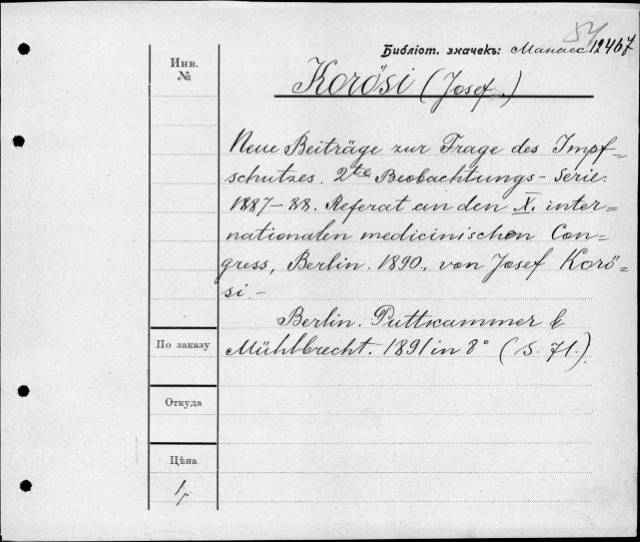 84
Библіот. значекъ: Манасс 12467
Инв.
№
Korősi (Josef.)
Neue Beiträge zur Frage des Impf-
schutzes. 2te Beobachtungs-Serie.
1887-88. Referat an den X. inter-
nationalen medicinischen Con-
gress, Berlin. 1890., von Josef Korő-
si.-
Berlin. Puttkammer &
Mühlbrecht. 1891 in 8° (S. 71.)
По заказу
Откуда
Цѣна